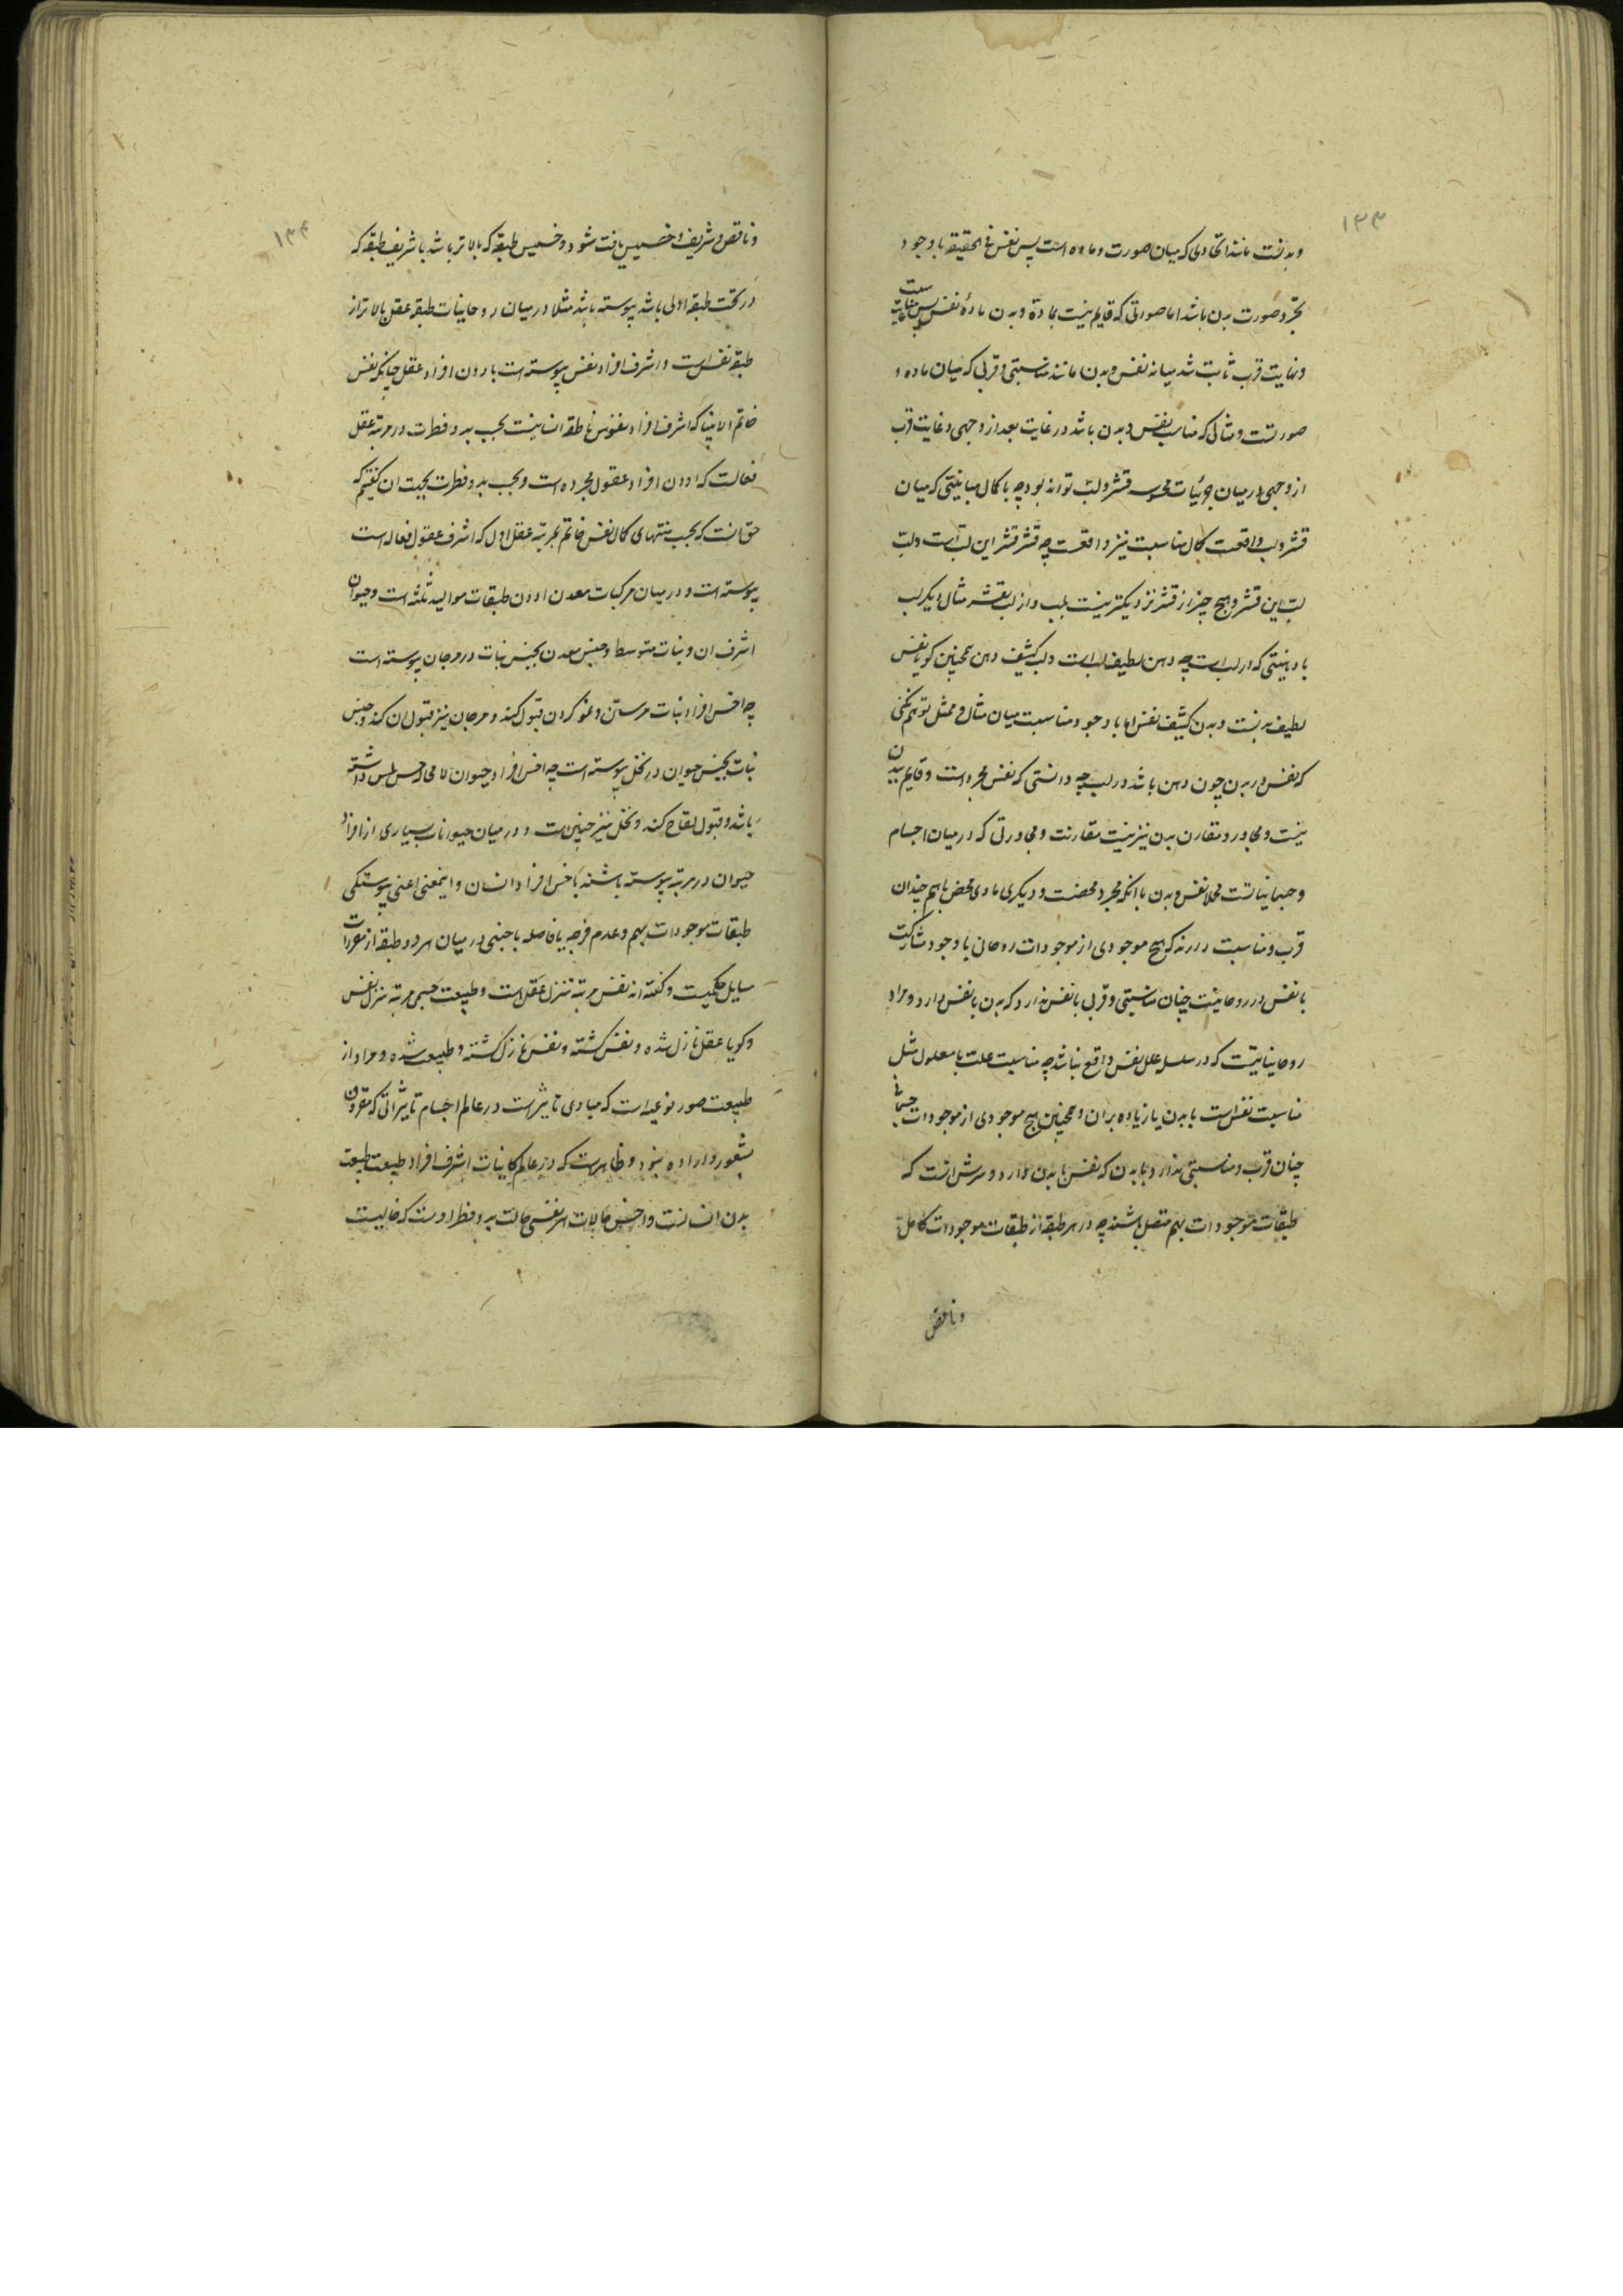 ۱۳۳
وبدنست مانند اتحادی که میان صورت و ماده است پس نفس فی الحقیقه با وجود
تجرد صورت بدن باشد اما صورتی که قایم نیست بماده و بدن ماده نفس پس مناسبت
ونهایت قرب ثابت شد میانه نفس و بدن مانند مناسبتی و قربی که میان ماده و
صورتست و مثالی که مناسب نفس و بدن باشد در غایت بعد از وجهی و غایت قرب
از وجهی در میان جزئیات محسوسه قشر و لب تواند بود چه با کمال مباینتی که میان
قشر و لب واقعست کمال مناسبت نیز واقعست چه قشر قشر این لب است و لب
لب این قشر و هیچ چیز از قشر نزدیکتر نیست بلب و از لب بقشر مثال دیگر لب
با دهنیتی که در لب است چه دهن لطیف لب است و لب کثیف دهن همچنین گویا نفس
لطیف بدنست و بدن کثیف نفس اما با وجود مناسبت میان مثال و ممثل توهم نکنی
که نفس در بدن چون دهن باشد در لب چه دانستی که نفس مجرد است و قایم ببدن
نیست و مجاور و مقارن بدن نیز نیست مقارنت و مجاورتی که در میان اجسام
و جسمانیاتست مجملا نفس و بدن با انکه مجرد محضست و دیگری مادی محض با هم چندان
قرب و مناسبت دارند که هیچ موجودی از موجودات روحانی با وجود مشارکت
با نفس در روحانیت چنان مناسبتی و قربی با نفس ندارد که بدن با نفس دارد و مراد
روحانیاتیست که در سلسله علل نفس واقع نباشد چه مناسبت علت با معلول مثل
مناسبت نفس است با بدن یا زیاده بران و همچنین هیچ موجودی از موجودات جسمانی
چنان قرب و مناسبتی ندارد با بدن که نفس با بدن دارد و سرش انست که
طبقات موجودات بهم متصل باشند چه در هر طبقه از طبقات موجودات کامل
وناقص
۱۳۴
و ناقص و شریف و خسیس یافت شود و خسیس طبقه که بالاتر باشد با شریف طبقه که
در تحت طبقه اولی باشد پیوسته باشد مثلا در میان روحانیات طبقه عقل بالاتر از
طبقه نفس است و اشرف افراد نفس پیوسته است با دون افراد عقل چنانکه نفس
خاتم الانبیا که اشرف افراد نفوس ناطقه انسانیت بحسب بدو فطرت در مرتبه عقل
فعالست که ادون افراد عقول مجرده است و بحسب بدو فطرت بجهت ان گفتیم که
حق انست که بحسب منتهای کمال نفس خاتم بمرتبه عقل اول که اشرف عقول فعاله است
پیوسته است و در میان مرکبات معدن ادون طبقات موالید ثلثه است و حیوان
اشرف ان و نبات متوسط و جنس معدن بجنس نبات در مرجان پیوسته است
چه اخس افراد نبات مرستن و نمو کردن قبول کند و مرجان نیز قبول ان کند و جنس
نبات بجنس حیوان در نخل پیوسته است چه اخس افراد حیوان لا محاله حس لمس داشته
باشد و قبول لقاح کند و نخل نیز چنین است و در میان حیوانات بسیاری از افراد
حیوان در مرتبه پیوسته باشند باخس افراد انسان و اینمعنی اعنی پیوستگی
طبقات موجودات بهم و عدم فرجه یا فاصله با جنبی در میان هر دو طبقه از مقررات
مسایل حکمیست و گفته اند نفس مرتبه تنزل عقل است و طبیعت جسمی مرتبه تنزل نفس
و گویا عقل نازل شده و نفس گشته و نفس نازل گشته و طبیعت شده و مراد از
طبیعت صور نوعیه است که مبادی تاثیر است در عالم اجسام تاثیراتی که مقرون
بشعور و اراده نبود و ظاهر است که در عالم کاینات اشرف افراد طبیعت طبیعت
بدن انسانست و اخس حالات هر نفسی حالت بدو فطر اوست که خالیست